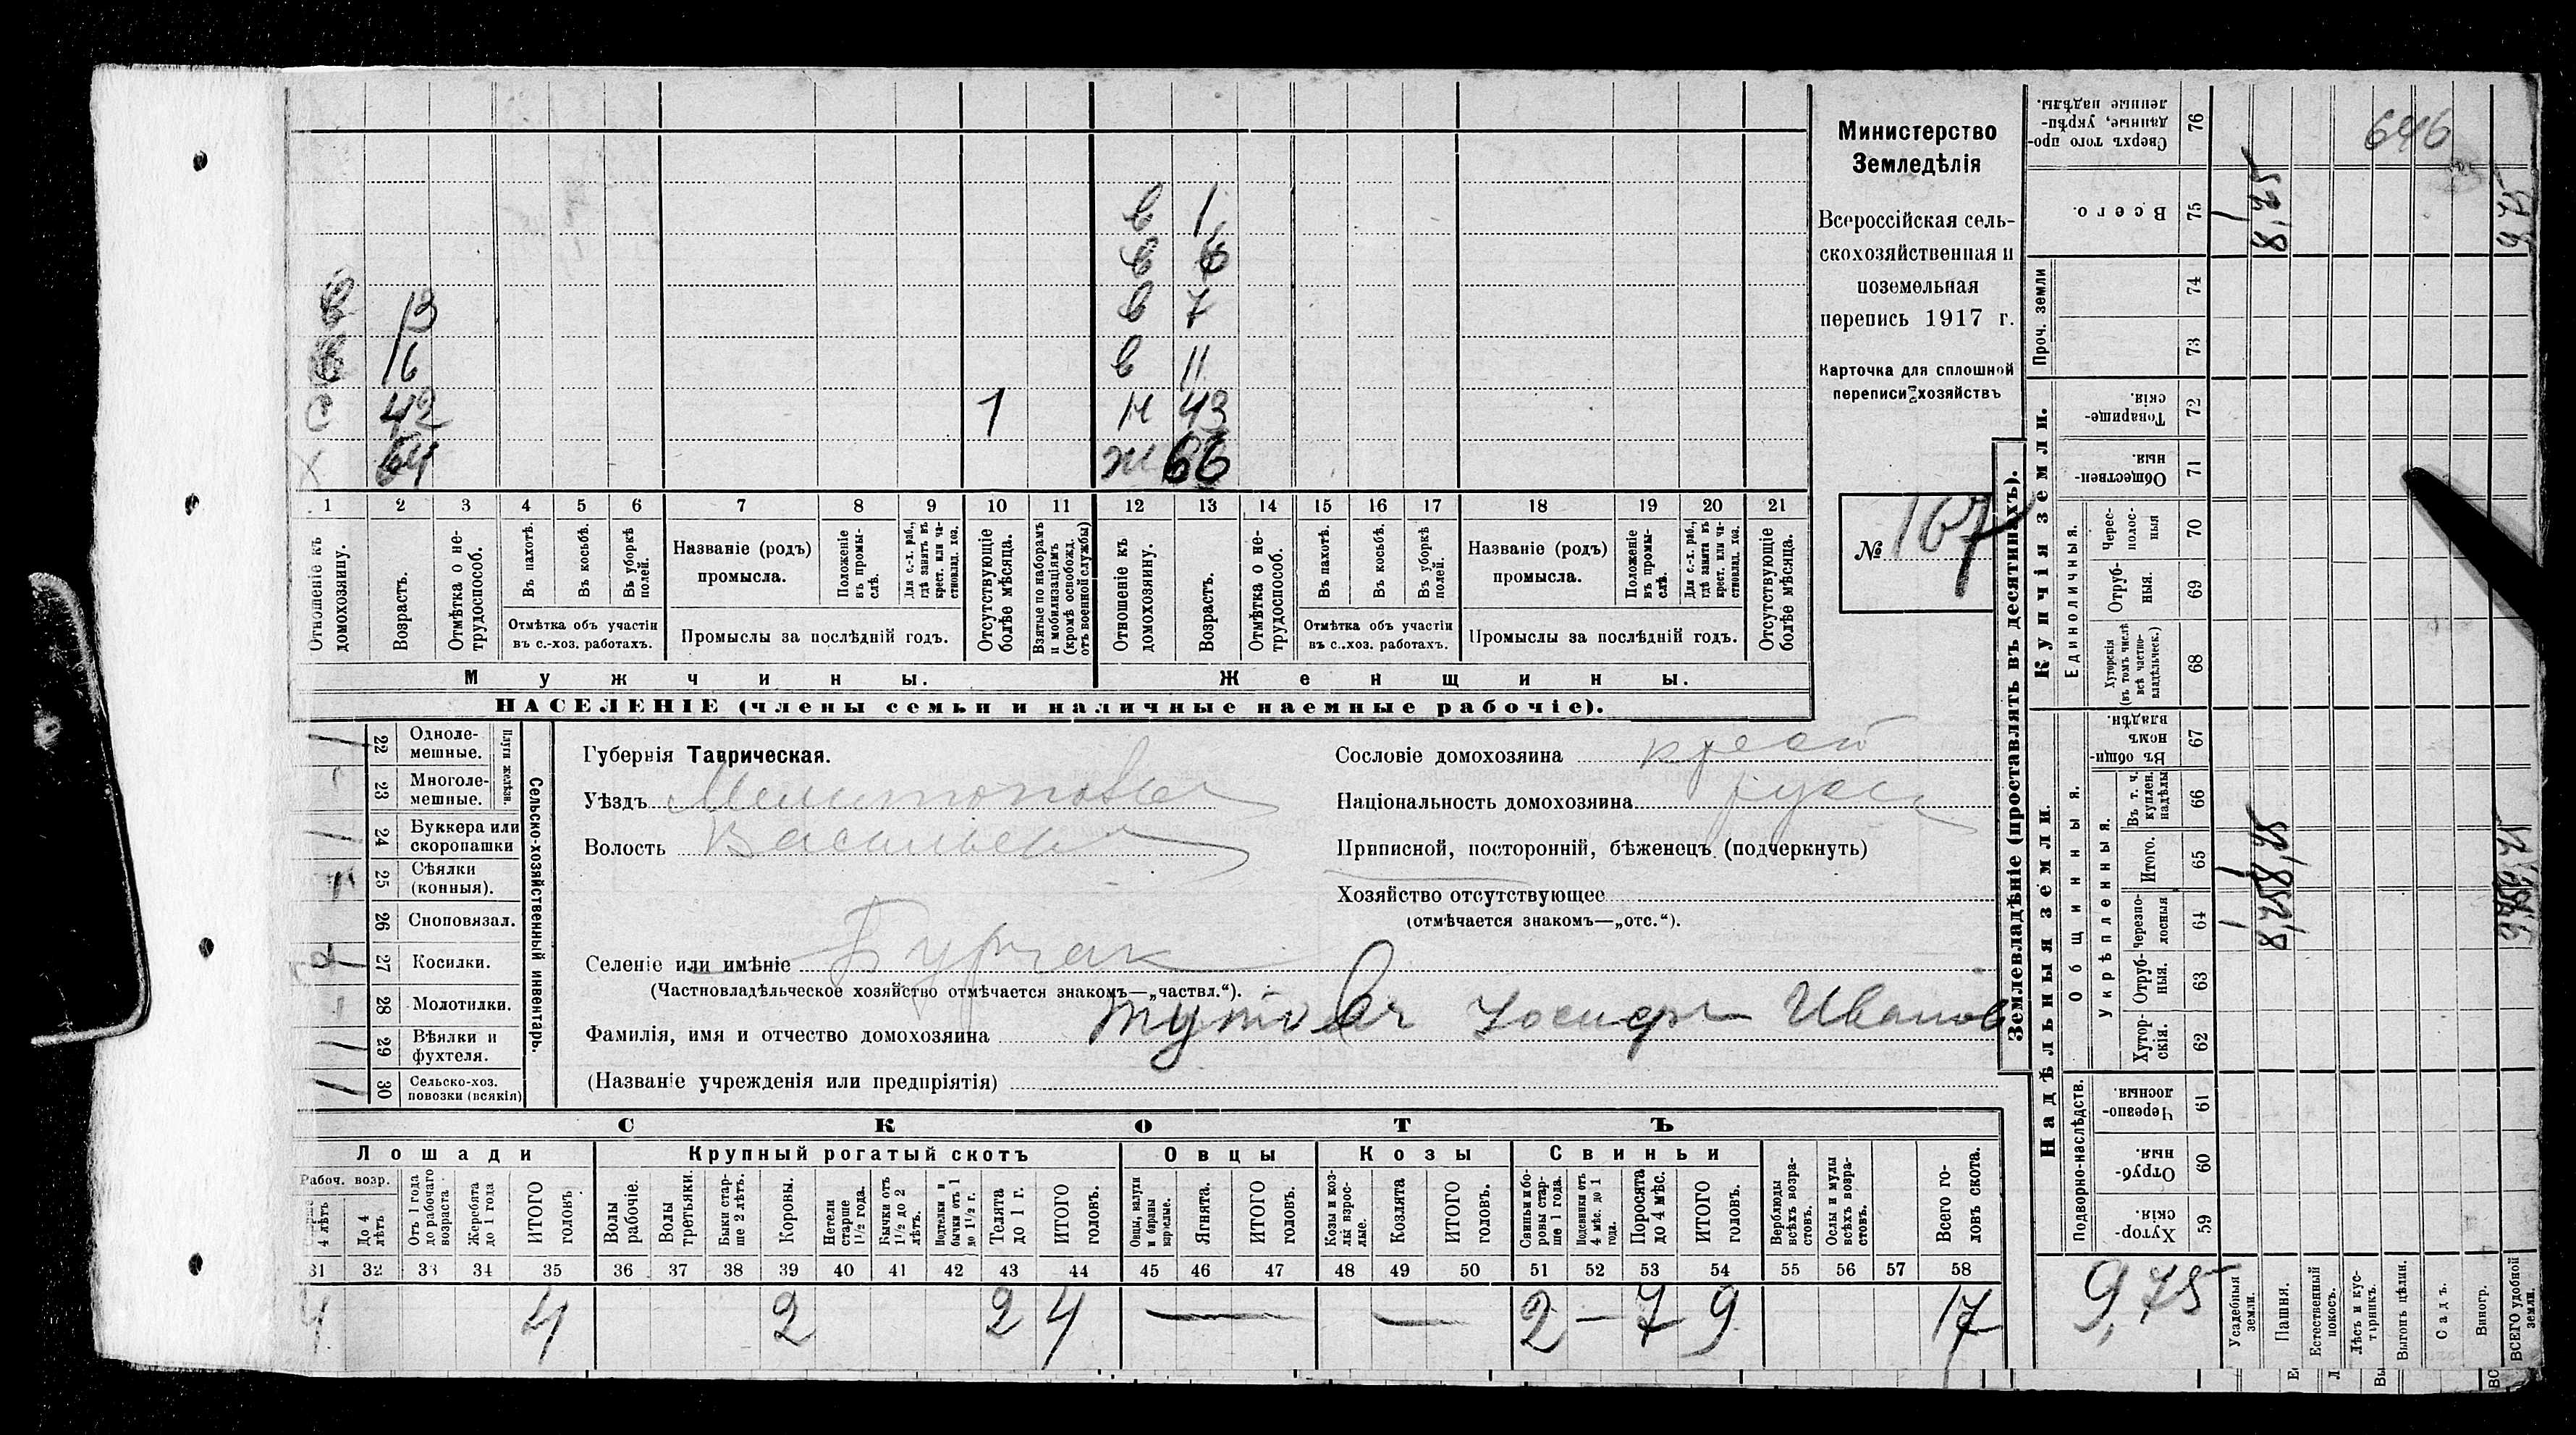 в 1
в 6
в 13 в 7
в 16 в 11
с 42 1 н 43
х 64 ж 66
1 2 3 4 5 6 7 8 9 10 11 12 13 14 15 16 17 18 19 20 21
Отношеніе къ домохозяину.
Возрастъ.
Отмѣтка о не-трудоспособ.
Въ пахотѣ.
Въ косьбѣ.
Въ уборкѣ полей.
Отмѣтка объ участіи въ с.-хоз. работахъ.
Названіе (родъ) промысла.
Положеніе въ промы-слѣ.
Для с.-х. раб., гдѣ занятъ въ крест. или ча-стновлад. хоз.
Промыслы за послѣдній годъ.
Отсутствующіе болѣе мѣсяца.
Взятые по наборамъ и мобилизаціямъ (кромѣ освобожд. отъ военной службы)
Отношеніе къ домохозяину.
Возрастъ.
Отмѣтка о не-трудоспособ.
Въ пахотѣ.
Въ косьбѣ.
Въ уборкѣ полей.
Отмѣтка объ участіи въ с.-хоз. работахъ.
Названіе (родъ) промысла.
Положеніе въ промы-слѣ.
Для с.-х. раб., гдѣ занята въ крест. или ча-стновлад. хоз.
Промыслы за послѣдній годъ.
Отсутствующіе болѣе мѣсяца.
Мужчины. Женщины.
НАСЕЛЕНІЕ (члены семьи и наличные наемные рабочіе).
Министерство
Земледѣлія
Всероссійская сель-
скохозяйственная и
поземельная
перепись 1917 г.
Карточка для сплошной
переписи хозяйствъ
№ 167
Сельско-хозяйственный инвентарь.
Плуги желѣзн.
22 Одноле-мешные.
23 Многоле-мешные.
24 Буккера или скоропашки
25 Сѣялки (конныя).
26 Сноповязал.
27 Косилки.
28 Молотилки.
29 Вѣялки и фухтеля.
30 Сельско-хоз. повозки (всякія)
Губернія Таврическая.
Уѣздъ Мелитопольск
Волость Васильев
Селеніе или имѣніе Бурчак
(Частновладѣльческое хозяйство отмѣчается знакомъ—„частвл.“).
Фамилія, имя и отчество домохозяина Иосиф Иванов
(Названіе учрежденія или предпріятія)
Сословіе домохозяина крест
Національность домохозяина русск
Приписной, посторонній, бѣженецъ (подчеркнуть)
Хозяйство отсутствующее
(отмѣчается знакомъ—„отс.“).
СКОТЪ
Лошади Крупный рогатый скотъ Овцы Козы Свиньи
Рабоч. возр.
4 лѣтъ
До 4 лѣтъ
Отъ 1 года до рабочаго возраста
Жеребята до 1 года
ИТОГО головъ.
Волы рабочіе.
Волы третьяки.
Быки стар-ше 2 лѣтъ.
Коровы.
Нетели старше 1½ года.
Бычки отъ 1½ до 2 лѣтъ.
Подтелки и бычки отъ 1 до 1½ г.
Телята до 1 г.
ИТОГО головъ.
Овцы, валухи и бараны взрослые.
Ягнята.
ИТОГО головъ.
Козы и коз-лы взрос-лые.
Козлята
ИТОГО головъ.
Свиньи и бо-ровы стар-ше 1 года.
Подсвинки отъ 4 мѣс. до 1 года.
Поросята до 4 мѣс.
ИТОГО головъ.
Верблюды всѣхъ возра-стовъ.
Ослы и мулы всѣхъ возра-стовъ.
Всего го-ловъ скота.
31 32 33 34 35 36 37 38 39 40 41 42 43 44 45 46 47 48 49 50 51 52 53 54 55 56 57 58
4 4 2 2 4 — — 2 — 7 9 17
Землевладѣніе (проставлять въ десятинахъ).
Надѣльныя земли.
Купчія земли.
Проч. земли
Подворно-наслѣдств.
Общинныя.
Укрѣпленныя.
Единоличныя.
59 Хутор-скія.
60 Отруб-ныя.
61 Черезпо-лосныя
62 Хутор-скія.
63 Отруб-ныя.
64 Черезпо-лосныя
65 Итого.
66 Въ т. ч. куплен. надѣлы
67 Въ общин-номъ владѣн.
68 Хуторскія (въ томъ числѣ всѣ частно-владѣльческ.)
69 Отруб-ныя.
70 Черес-полос-ныя
71 Обществен-ныя.
72 Товарище-скія.
73
74
75 Всего.
76 Сверхъ того про-данные, укрѣп-ленные надѣлы.
9,75
Усадебныя земли. 1 1 1
Пашня. 8,25 8,25 8,25
Естественный покосъ.
Лѣсъ и кус-тарникъ.
Выгонъ цѣлин.
Садъ.
Виногр.
ВСЕГО удобной земли. 9,75
646